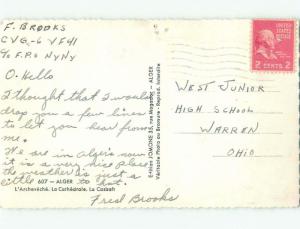 F. BROOKS
CVG-6 VF41
c/o F.P.O NYNY
O. Hello
I thought that I would
drop you a few lines
to let you hear from
me.
We are in Algiers now
it is a very nice place
the weather is just a
little to hot.
Fred Brooks
607 - ALGER
L'Archevêché. La Cathédrale. La Casbah
Edition JOMONE
rue Mogador - ALGER
Véritable Photo au Bromure - Reprod. Interdite
UNITED STATES
POSTAGE
2 CENTS 2
WEST JUNIOR
HIGH SCHOOL
WARREN
OHIO